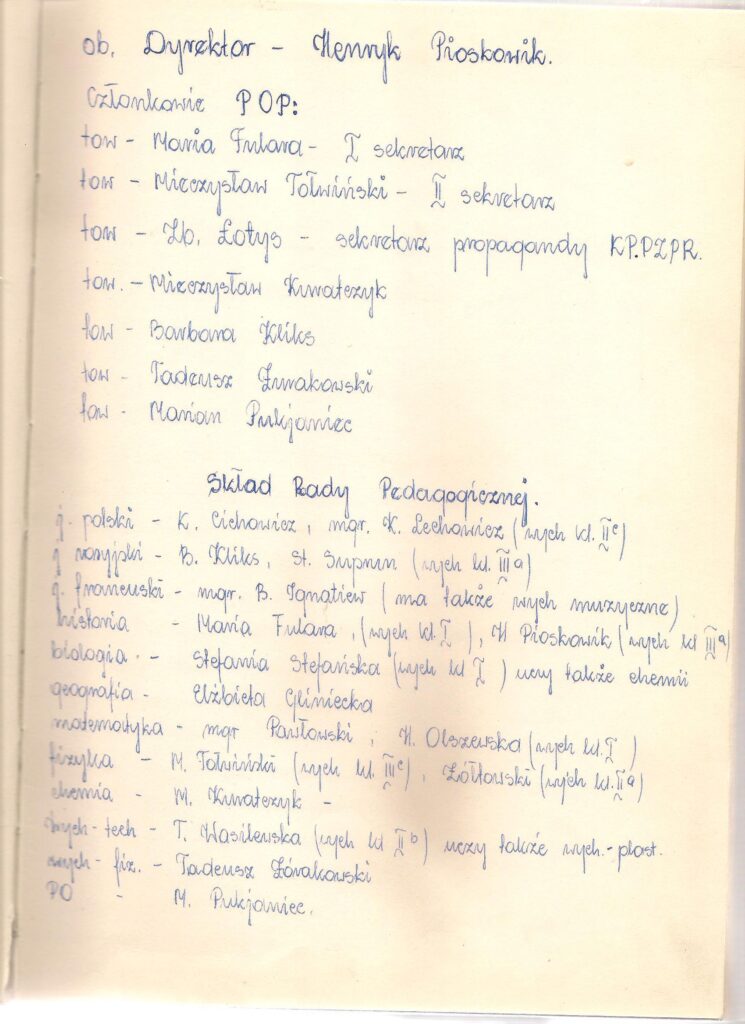 ob. Dyrektor - Henryk Pioskowik.
Członkowie POP:
tow - Maria Fulara - I sekretarz
tow - Mieczysław Tołwiński - II sekretarz
tow - Zb. Łotys - sekretarz propagandy KP.PZPR.
tow. - Mieczysław Kuratczyk
tow - Barbara Kliks
tow - Tadeusz Żurakowski
tow - Marian Pukjaniec
Skład Rady Pedagogicznej.
j. polski - K. Cichowicz, mgr. K. Lechowicz (wych kl. II c)
j rosyjski - B. Kliks, St. Suprun (wych kl. III a)
j. francuski - mgr. B. Ignatiew (ma także wych muzyczne)
historia - Maria Fulara, (wych kl. I ), H Pioskowik (wych kl III a)
biologia - Stefania Stefańska (wych kl I ) uczy także chemii
geografia - Elżbieta Gliniecka
matematyka - mgr Pawłowski, H. Olszewska (wych kl. I )
fizyka - M. Tołwiński (wych kl. III c), Żółtowski (wych kl. II a)
chemia - M. Kuratczyk -
wych-tech - T. Wasilewska (wych kl II b) uczy także wych.-plast.
wych-fiz. - Tadeusz Żórakowski
PO - M. Pukjaniec.